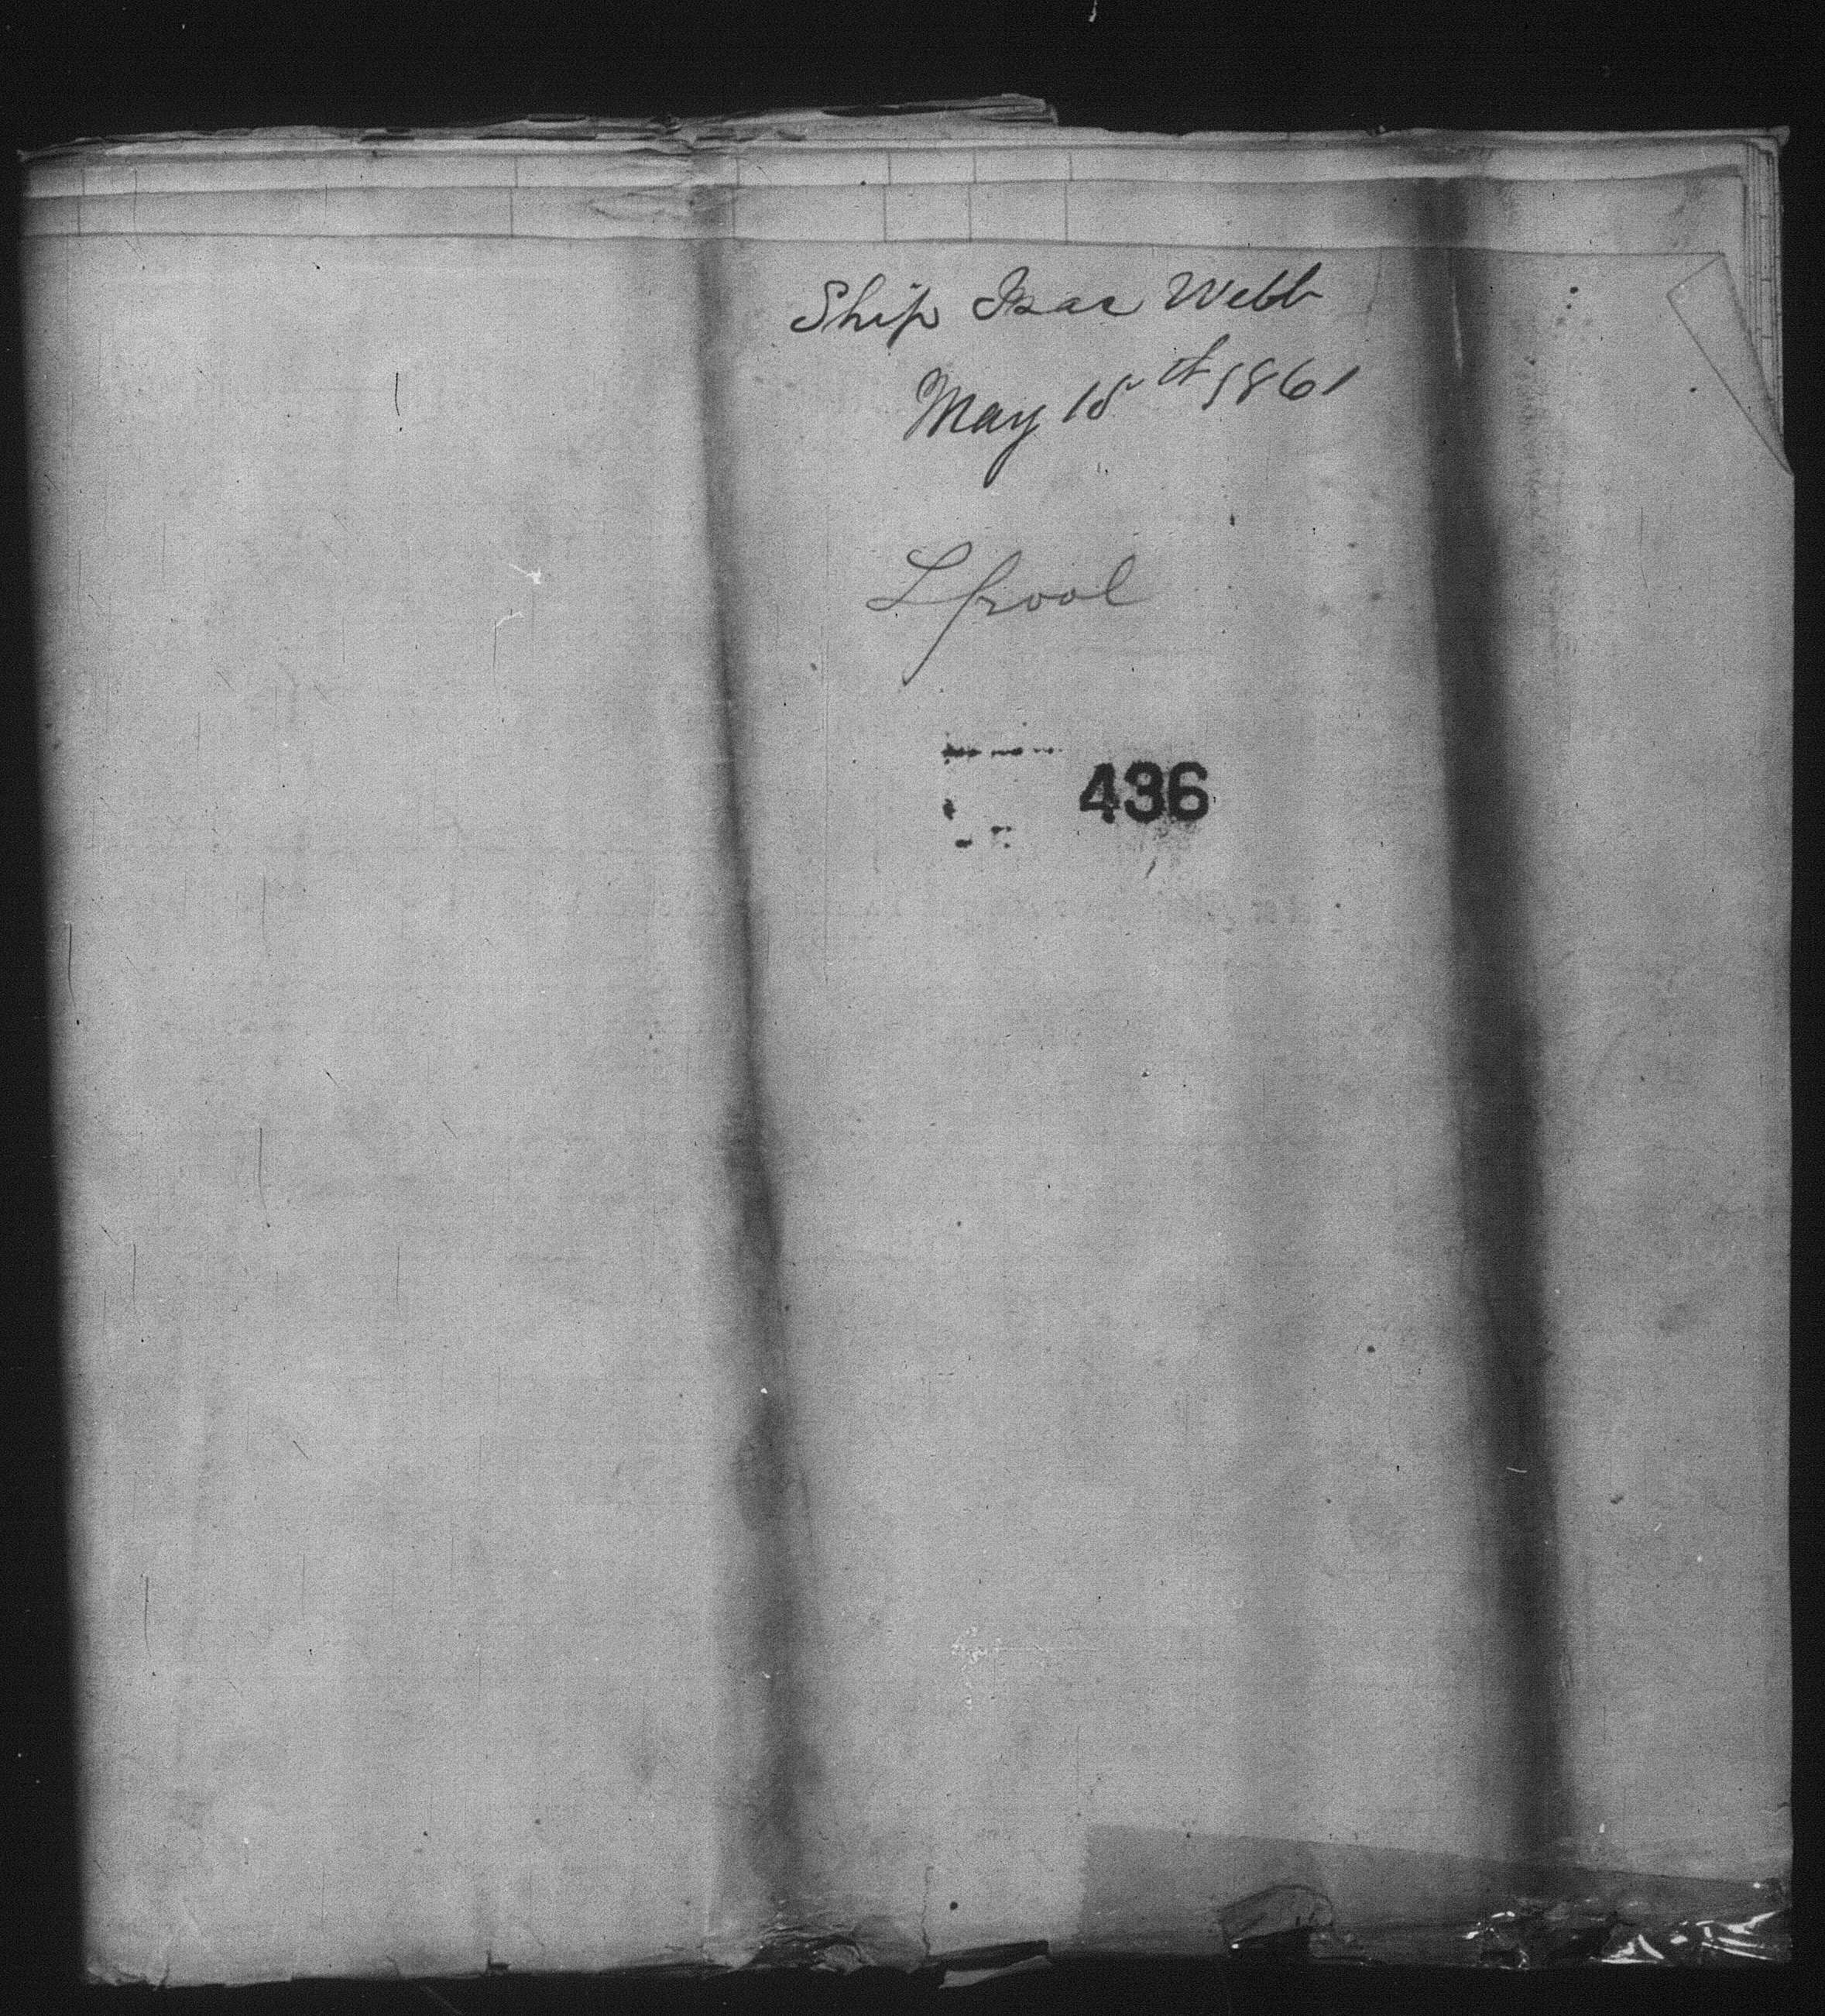 Ship Isac Webb
May 15th 1861
Lpool
436